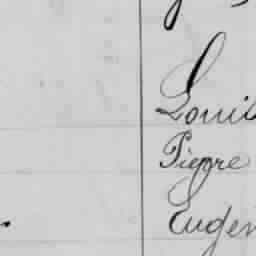 Louis
Pierre
Eugen